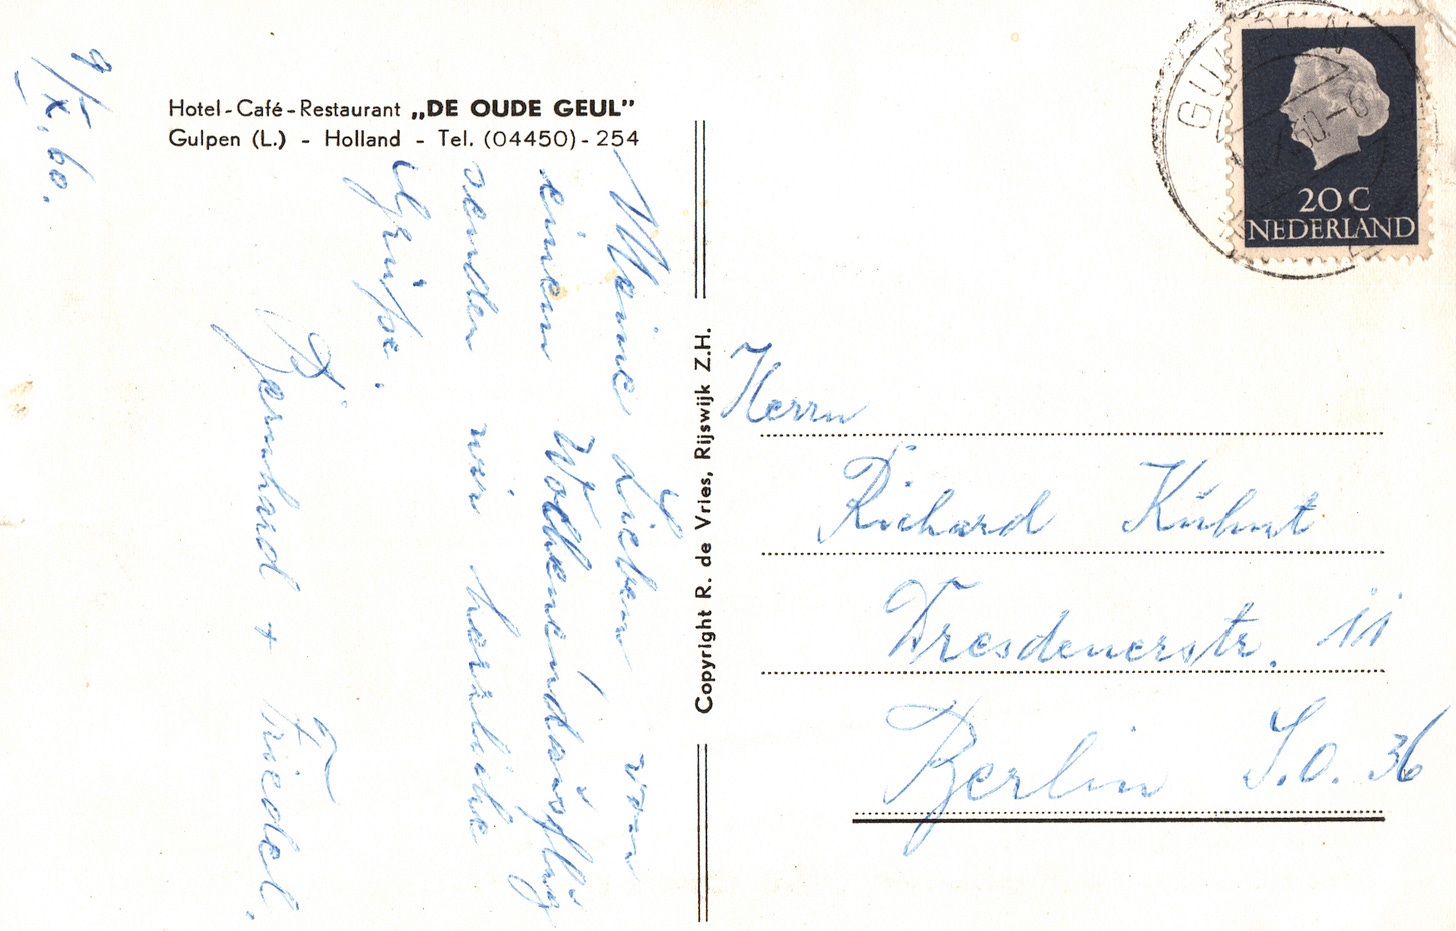 9/X.60.
Hotel-Café-Restaurant „DE OUDE GEUL”
Gulpen (L.) - Holland - Tel. (04450)-254
Meine Lieben von
einem Wochenendausflug
senden wir herzliche
Grüße.
Bernhard + Friedel.
Copyright R. de Vries, Rijswijk Z.H.
GULPEN
60.-6
20 C
NEDERLAND
Herrn
Richard Kühnt
Dresdenerstr. 11
Berlin S.O. 36